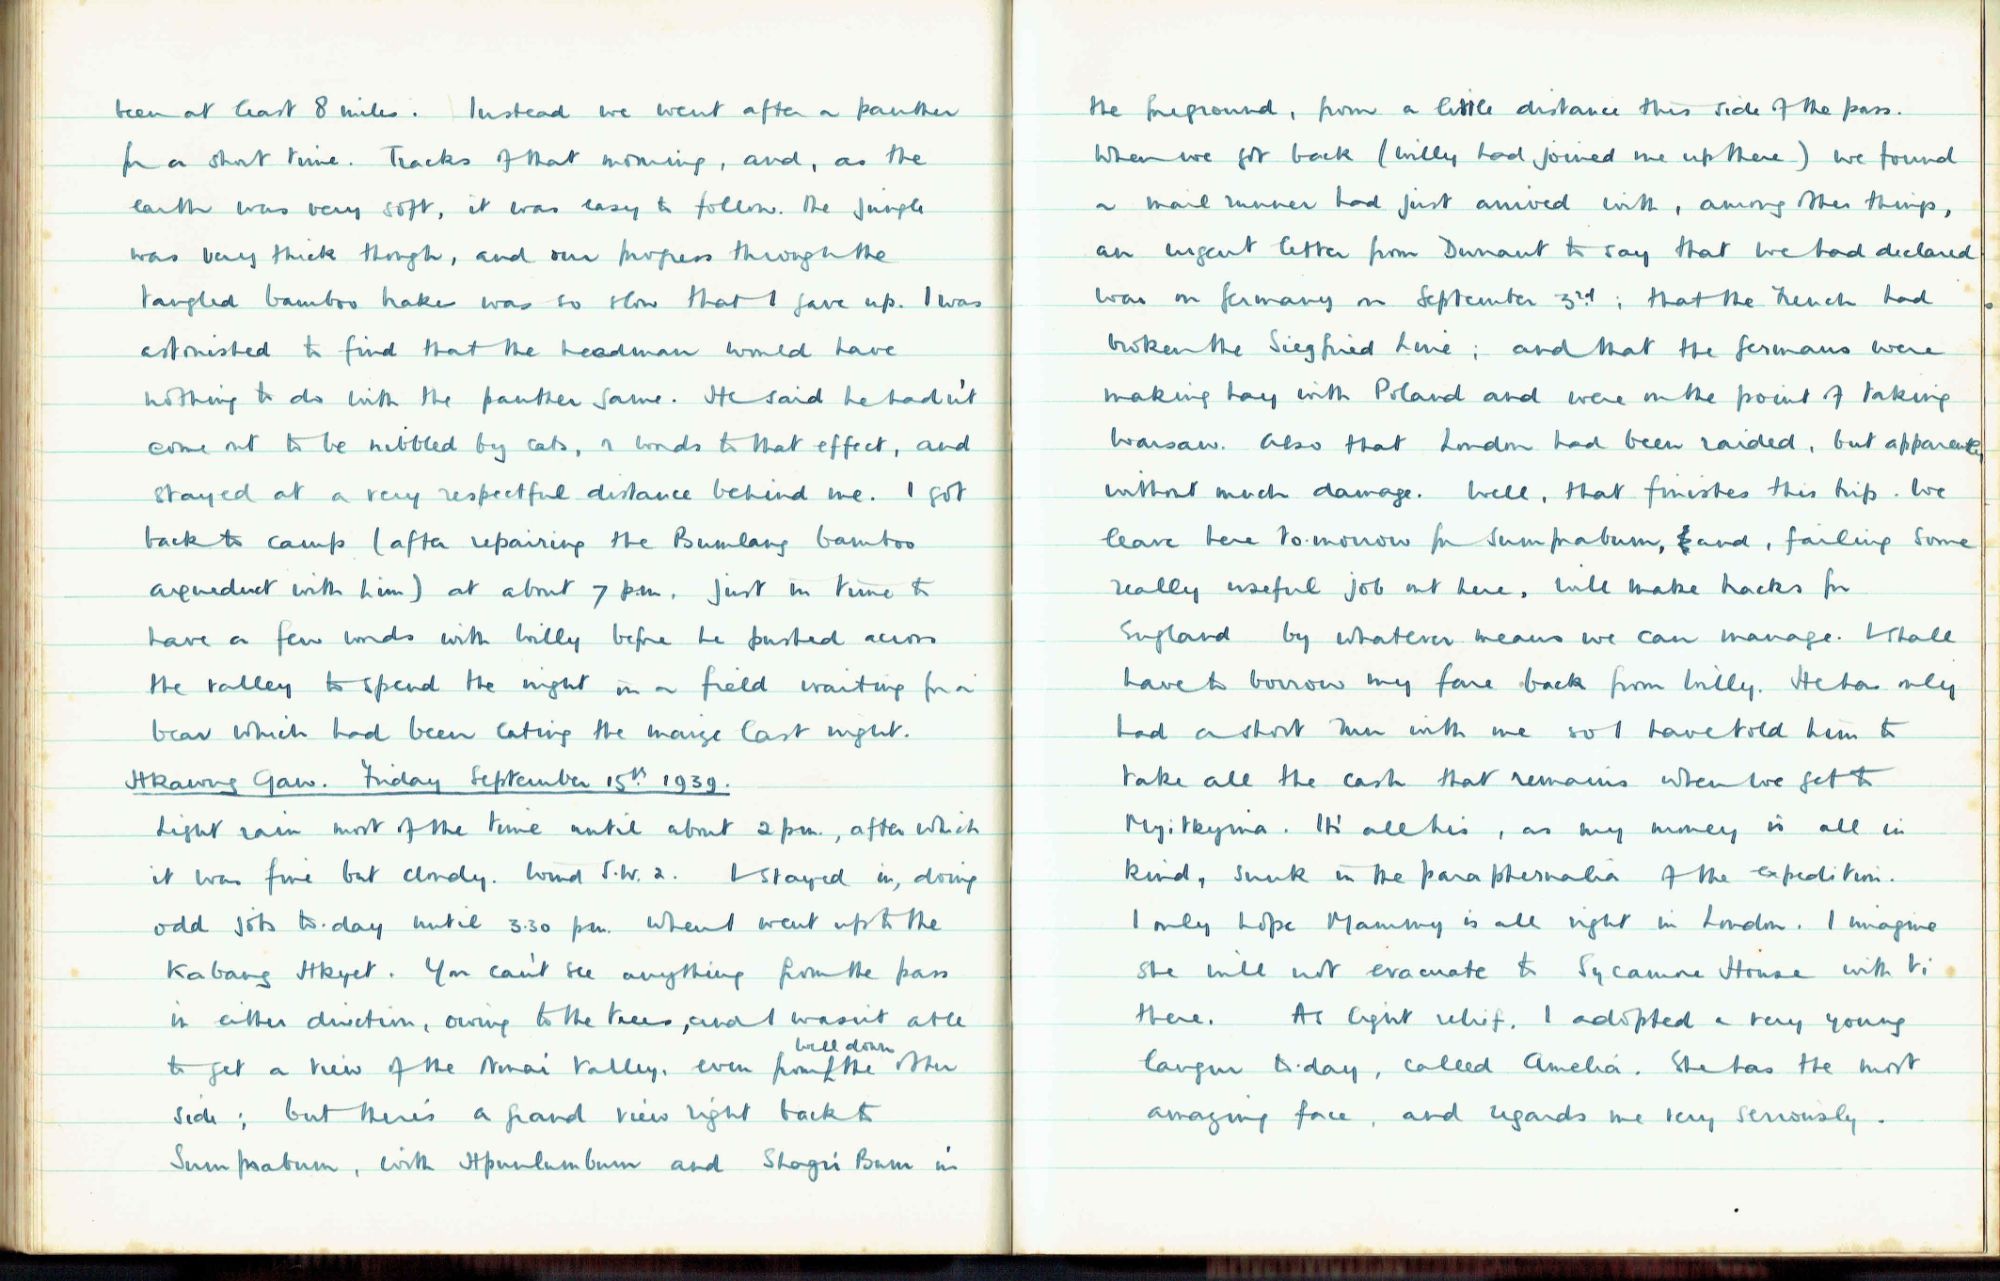 been at least 8 miles. Instead we went after a panther
for a short time. Tracks of that morning, and, as the
earth was very soft, it was easy to follow. The jungle
was very thick though, and our progress through the
tangled bamboo brakes was so slow that I gave up. I was
astonished to find that the headman would have
nothing to do with the panther game. He said he hadn't
come out to be nibbled by cats, or words to that effect, and
stayed at a very respectful distance behind me. I got
back to camp (after repairing the Bumlang bamboo
aqueduct with him) at about 7 pm. Just in time to
have a few words with Willy before he pushed across
the valley to spend the night in a field waiting for a
bear which had been eating the maize last night.
Hkawng Gaw. Friday September 15th 1939.
Light rain most of the time until about 2 pm., after which
it was fine but cloudy. Wind S.W. 2. I stayed in, doing
odd jobs to-day until 3.30 pm. when I went up to the
Kabang Hkyet. You can't see anything from the pass
in either direction, owing to the trees, and I wasn't able
to get a view of the Nmai valley, even from well down the other
side; but there's a grand view right back to
Sumprabum, with Hpunlumbum and Shagri Bum in
the foreground, from a little distance this side of the pass.
When we got back (Willy had joined me up there) we found
a mail runner had just arrived with, among other things,
an urgent letter from Durrant to say that we had declared
war on Germany on September 3rd; that the French had
broken the Siegfried Line; and that the Germans were
making hay with Poland and were on the point of taking
Warsaw. Also that London had been raided, but apparently
without much damage. Well, that finishes this trip. We
leave here to-morrow for Sumprabum, and, failing some
really useful job out here, will make tracks for
England by whatever means we can manage. I shall
have to borrow my fare back from Willy. He has only
had a short run with me so I have told him to
take all the cash that remains when we get to
Myitkyina. It's all his, as my money is all in
kind, sunk in the paraphernalia of the expedition.
I only hope Mammy is all right in London. I imagine
she will not evacuate to Sycamore House with Vi
there. As light relief, I adopted a very young
langur to-day, called Amelia. She has the most
amazing face, and regards me very seriously.